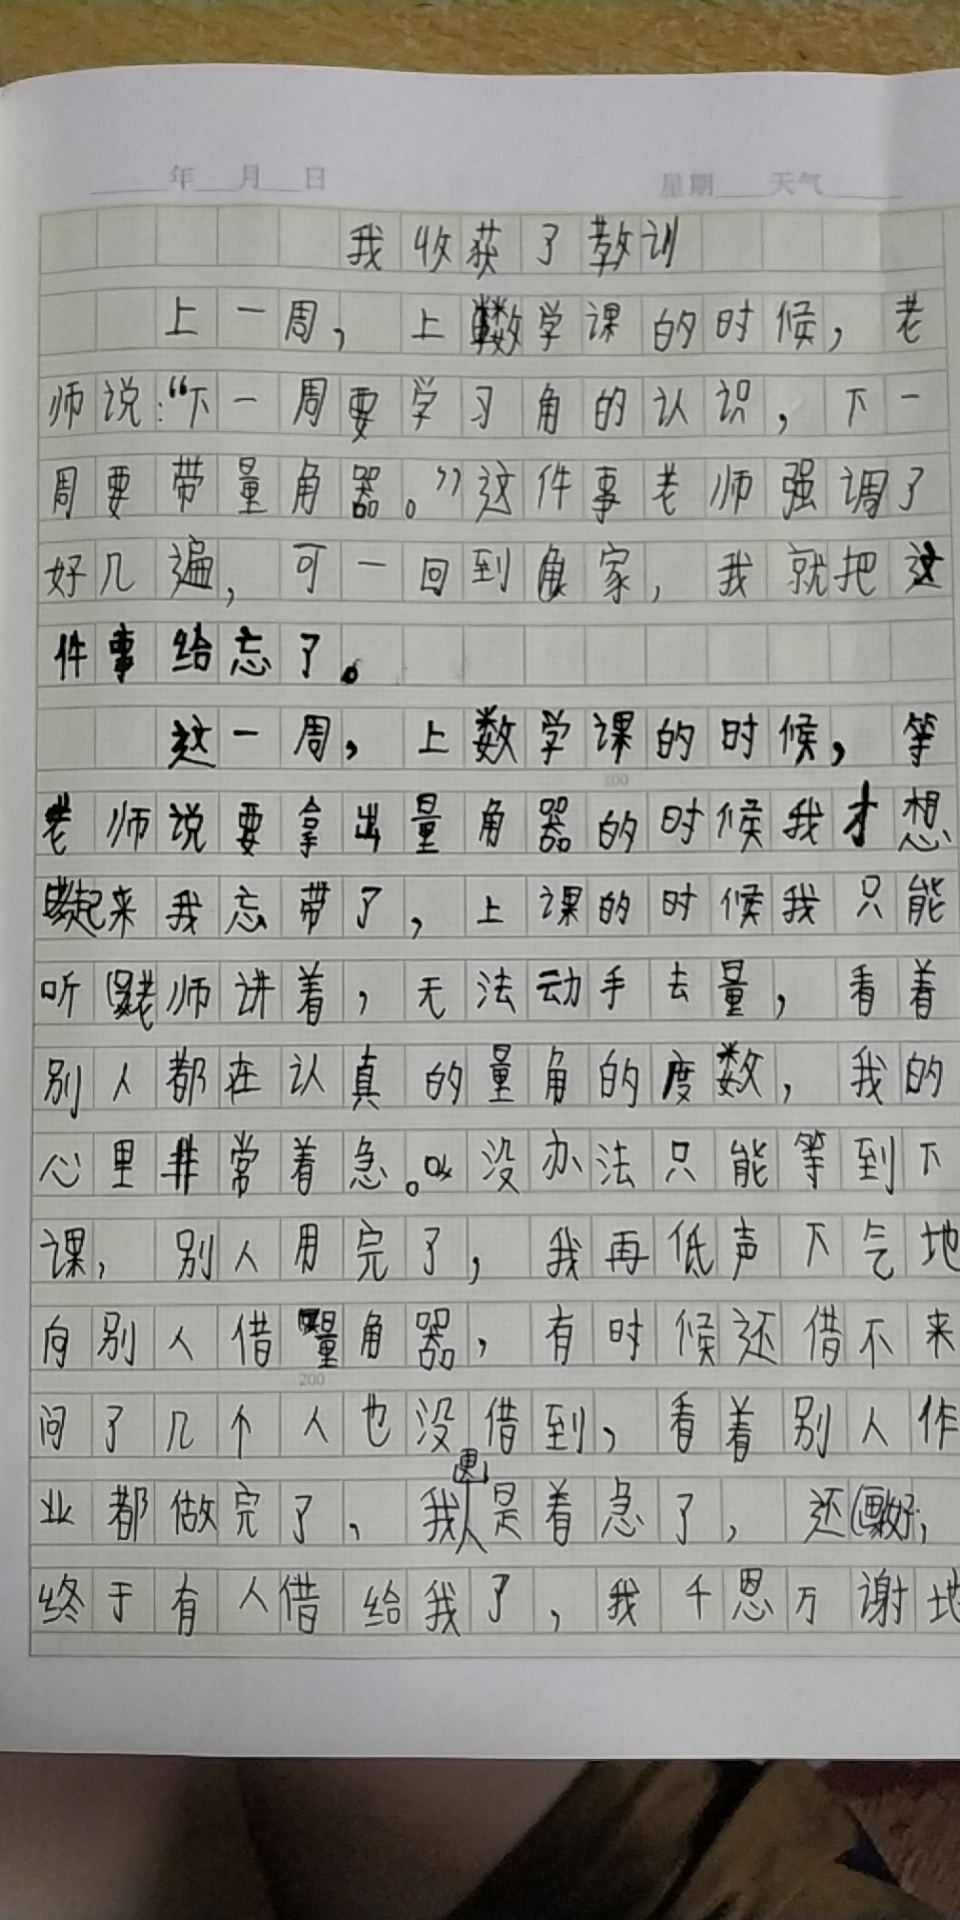 年 月 日 星期 天气
我收获了教训
上一周，上数学课的时候，老
师说：“下一周要学习角的认识，下一
周要带量角器。”这件事老师强调了
好几遍，可一回到家，我就把这
件事给忘了。
这一周，上数学课的时候，等
100
老师说要拿出量角器的时候我才想
起来我忘带了，上课的时候我只能
听老师讲着，无法动手去量，看着
别人都在认真的量角的度数，我的
心里非常着急。没办法只能等到下
课，别人用完了，我再低声下气地
向别人借量角器，有时候还借不来
200
问了几个人也没借到，看着别人作
业都做完了，我更是着急了，还好，
终于有人借给我了，我千恩万谢地